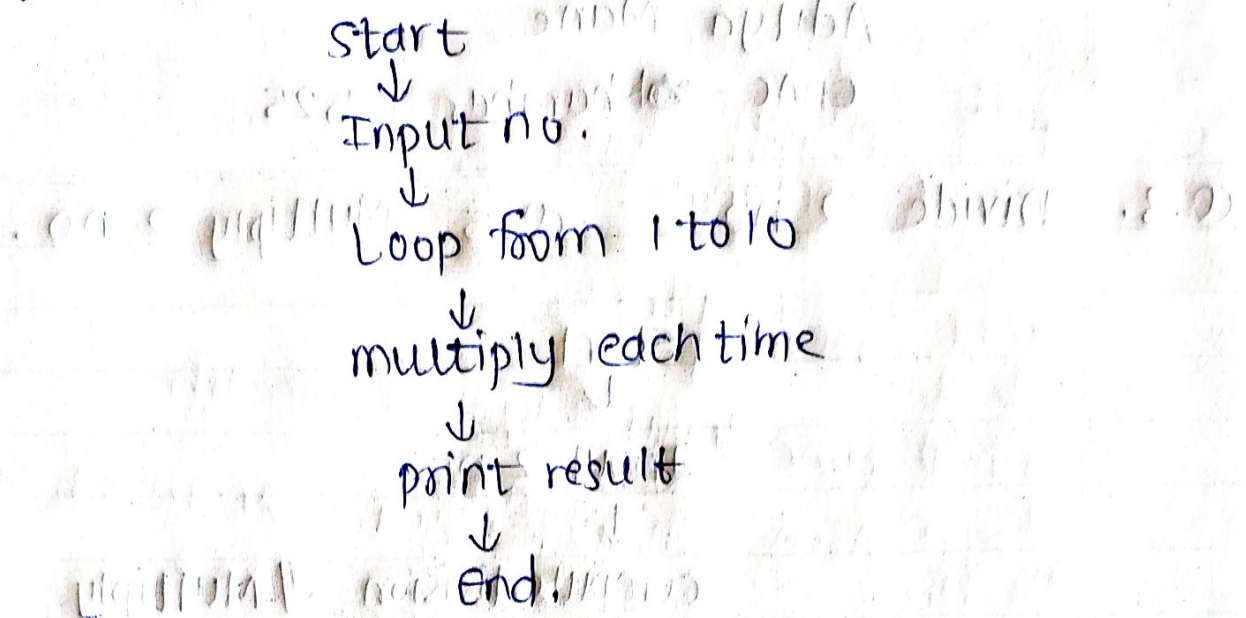 start
↓
Input no.
↓
Loop from 1 to 10
↓
multiply each time
↓
print result
↓
end.